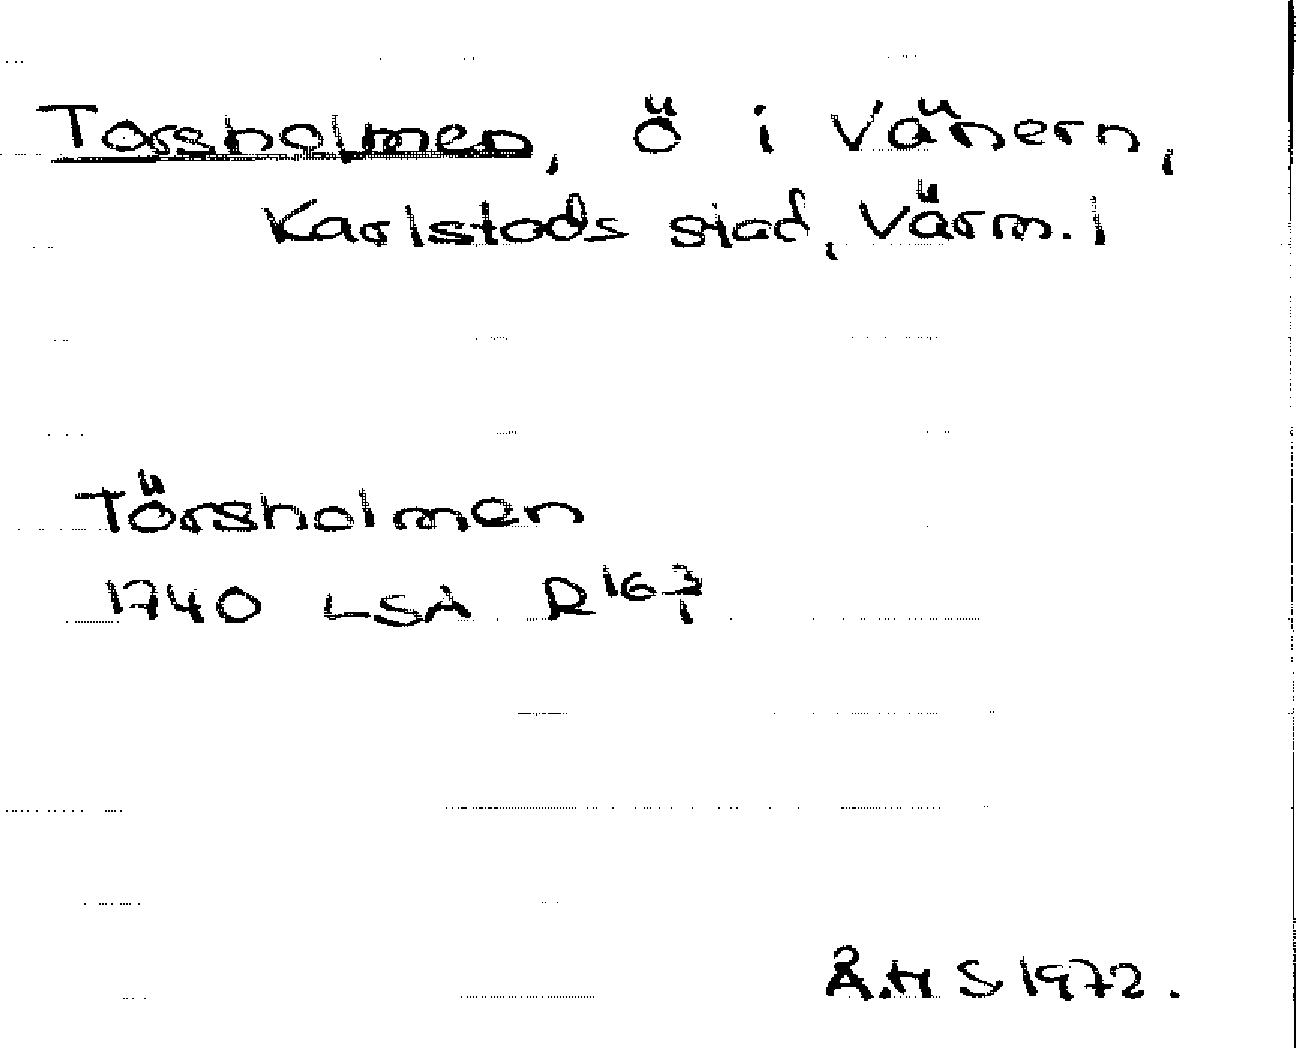 Torsholmen, ö i Vänern,
Karlstads stad, Värm. l
Törsholmen
1740 LSA R16-2/1
Å.H S 1972.